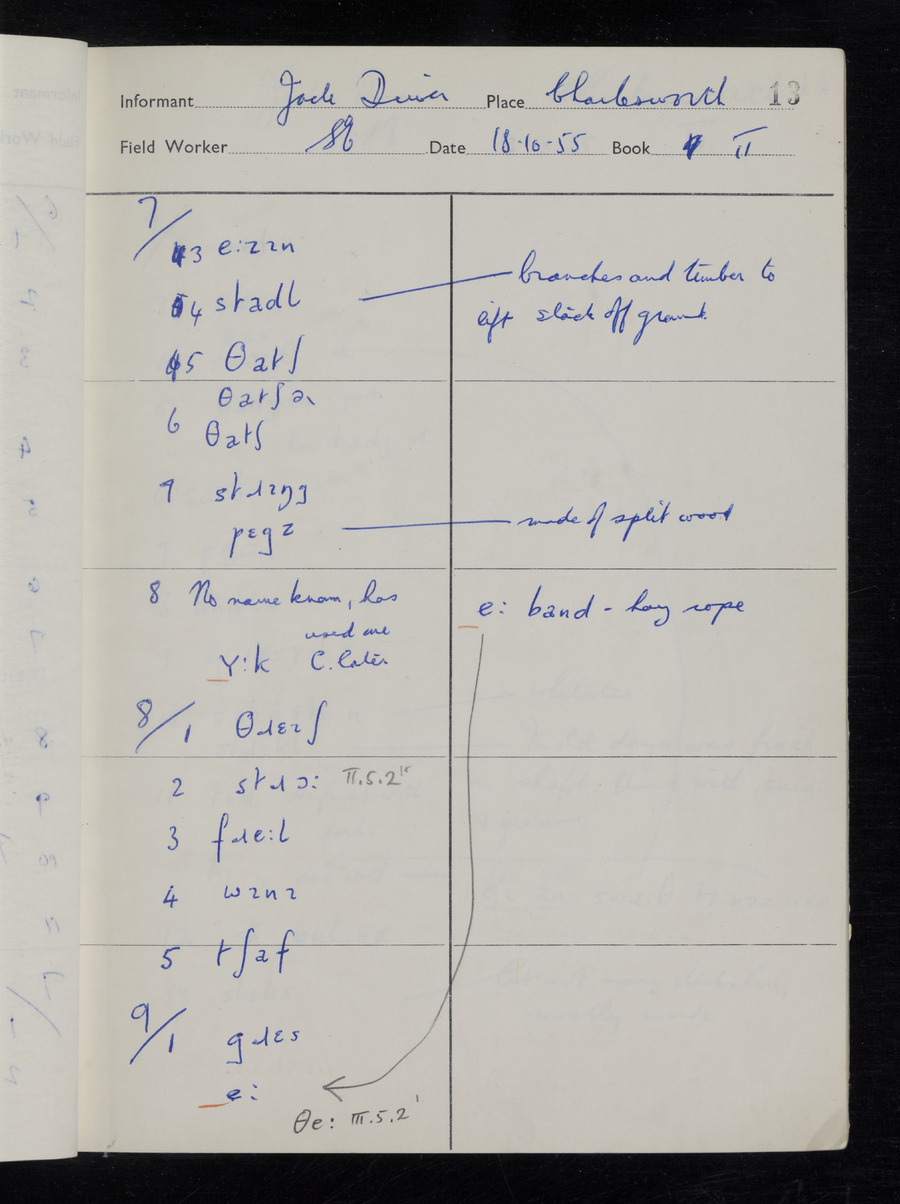 Informant Jack Driver Place Charlesworth 13
Field Worker SE Date 18·10·55 Book II
7/
3 e:zɪn
4 stadl
branches and timber to
lift stack off ground.
5 θatʃ
θatʃəɹ
6 θatʃ
7 stɹɪŋg
pɛgz
made of split wood
8 No name known, has
used one
Y:k C. later
e: band - hay rope
8/1 θɹɛʃ
2 stɹɔ: II.5.2
3 fɹe:l
4 wɪnɪ
5 tʃaf
9/1 gɹɛs
e:
θe: III.5.2